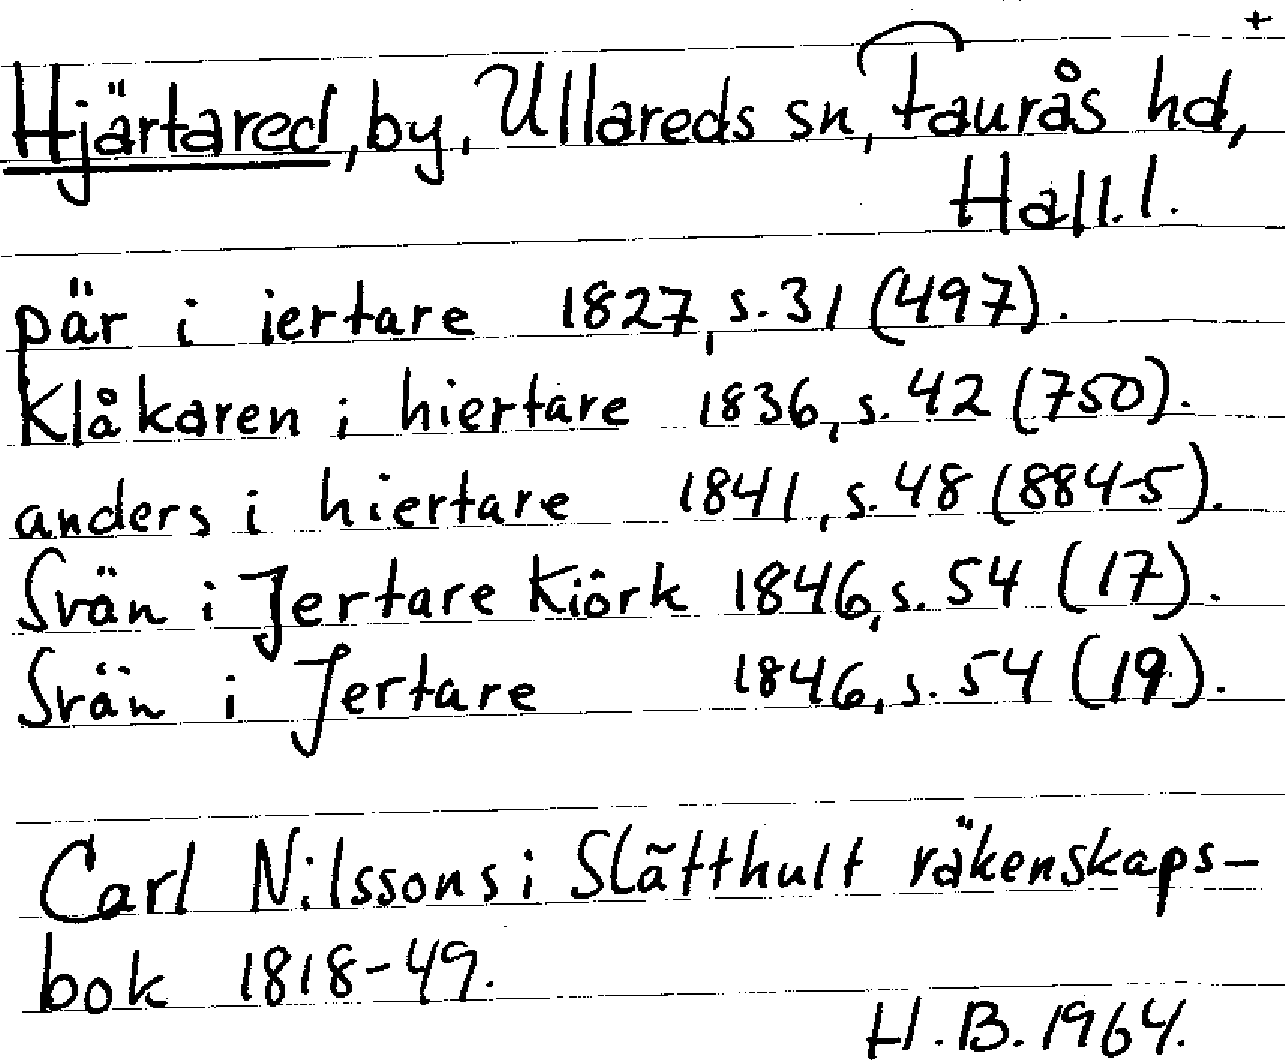 +
Hjärtared, by, Ullareds sn, Faurås hd,
Hall. l.
pär i iertare 1827, s. 31 (497).
Klåkaren i hiertare 1836, s. 42 (750).
anders i hiertare 1841, s. 48 (884-5).
Svän i Jertare Kiörk 1846, s. 54 (17).
Svän i Jertare 1846, s. 54 (19).
Carl Nilssons i Slätthult räkenskaps-
bok 1818-49.
H.B. 1964.